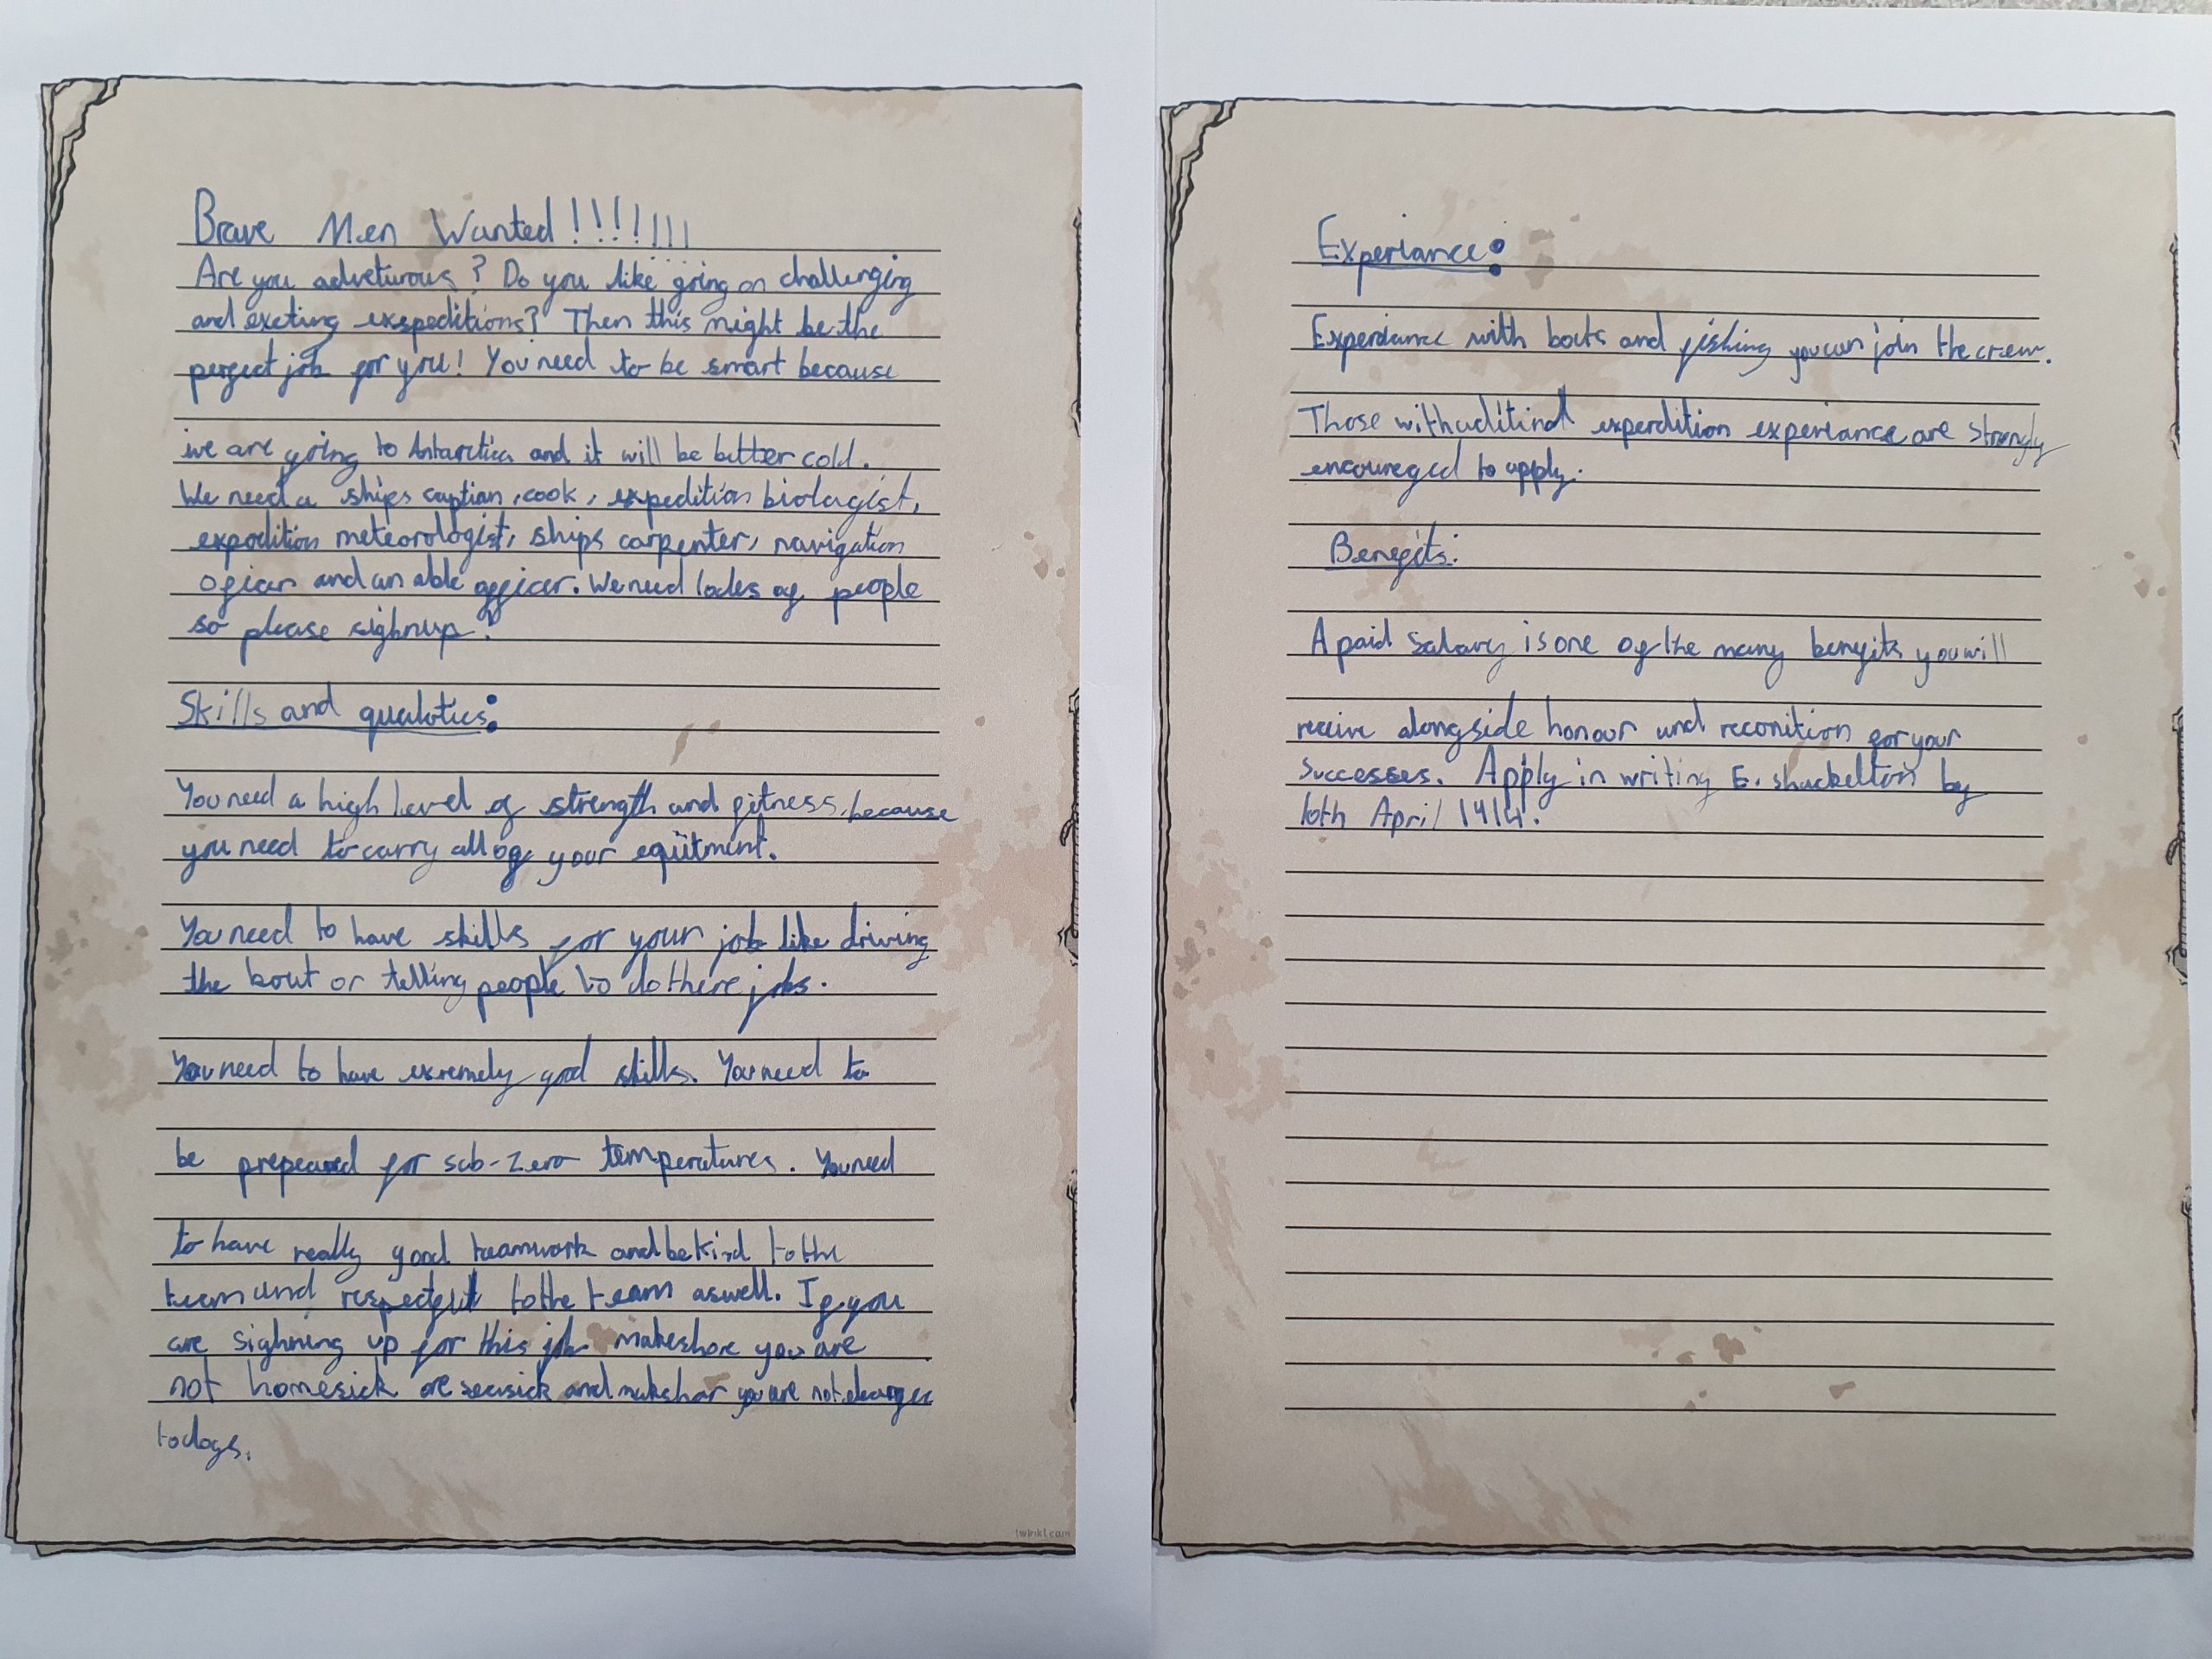 Brave Men Wanted!!!!!!!!
Are you adveturous? Do you like going on challenging
and exeting exspeditions? Then this might be the
perfect job for you! You need to be smart because
we are going to Antarctica and it will be bitter cold.
We need a ships captian, cook, expedition biologist,
expodition meteorologist, ships carpenter, navigation
oficer and an able officer. We need lodes of people
so please sighnup!
Skills and qualoties:
You need a high level of strength and fitness, because
you need to carry all of your equitment.
You need to have skills for your job like driving
the bout or telling people to do there jobs.
You need to have exremely good skills. You need to
be prepeared for sub-zero temperatures. You need
to have really good teamwork and be kind to the
team and respectfull to the team aswell. If you
are sighning up for this job makeshore you are
not homesick ore seasick and makeshor you are not
to dogs.
twinkl.com
Experiance:
Experiance with boats and fishing you can join the crew.
Those with aditinal experdition experiance are strongly
encoureged to apply.
Benefits:
A paid salary is one of the many benefits you will
receive alongside honour and reconition for your
successes. Apply in writing E. shackelton by
10th April 1914.